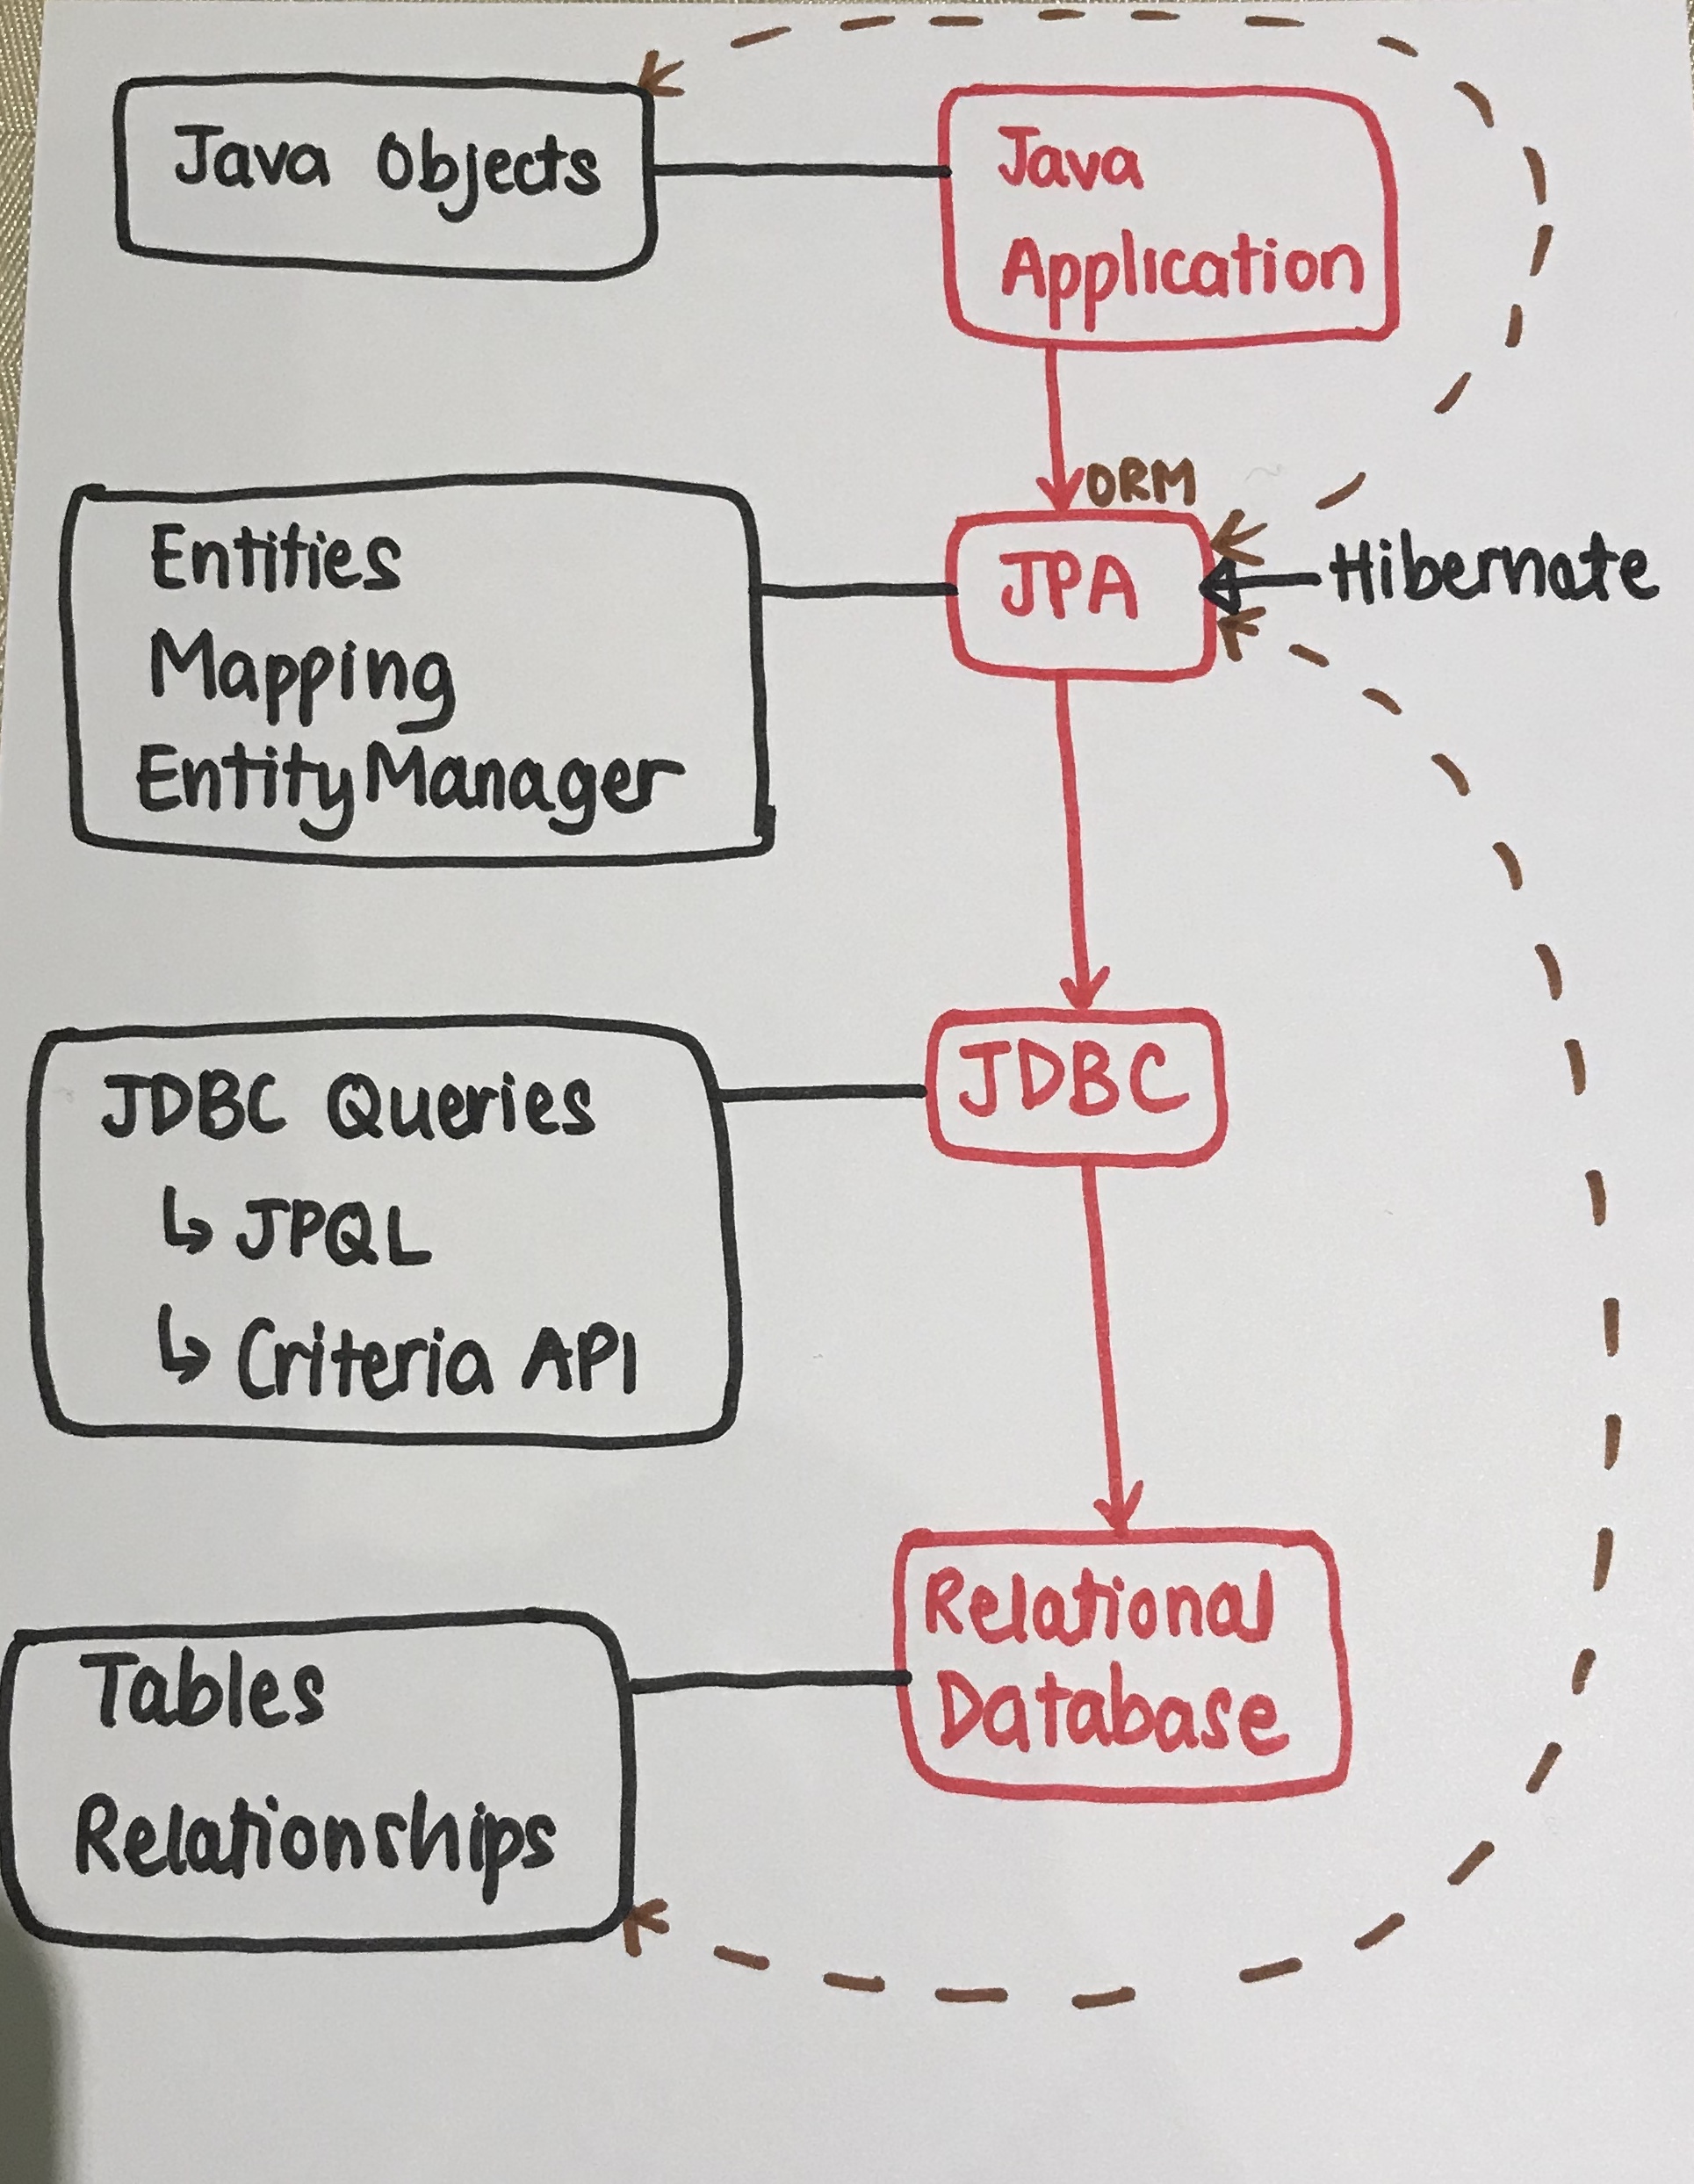 Java Objects
Java
Application
ORM
Entities
Mapping
EntityManager
JPA
Hibernate
JDBC Queries
↳ JPQL
↳ Criteria API
JDBC
Tables
Relationships
Relational
Database